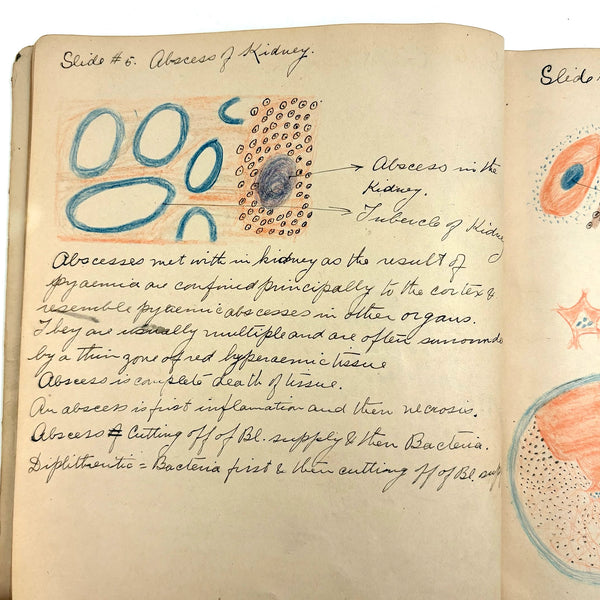 Slide # 5. Abscess of Kidney.
Slide
Abscess in the
Kidney.
Tubercle of Kidne
Abscesses met with in kidney as the result of
pyaemia are confined principally to the cortex &
resemble pyaemic abscesses in other organs.
They are usually multiple and are often surrounde
by a thin zone of red hyperaemic tissue
Abscess is complete death of tissue.
An abscess is first inflamation and then necrosis.
Abscess = Cutting off of Bl. supply & then Bacteria.
Diphtheritic = Bacteria first & then cutting off of Bl. sup